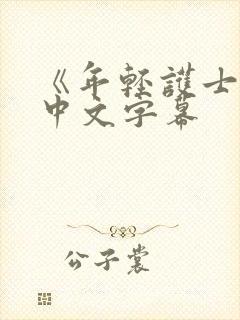 《年轻護士
中文字幕
公子裳